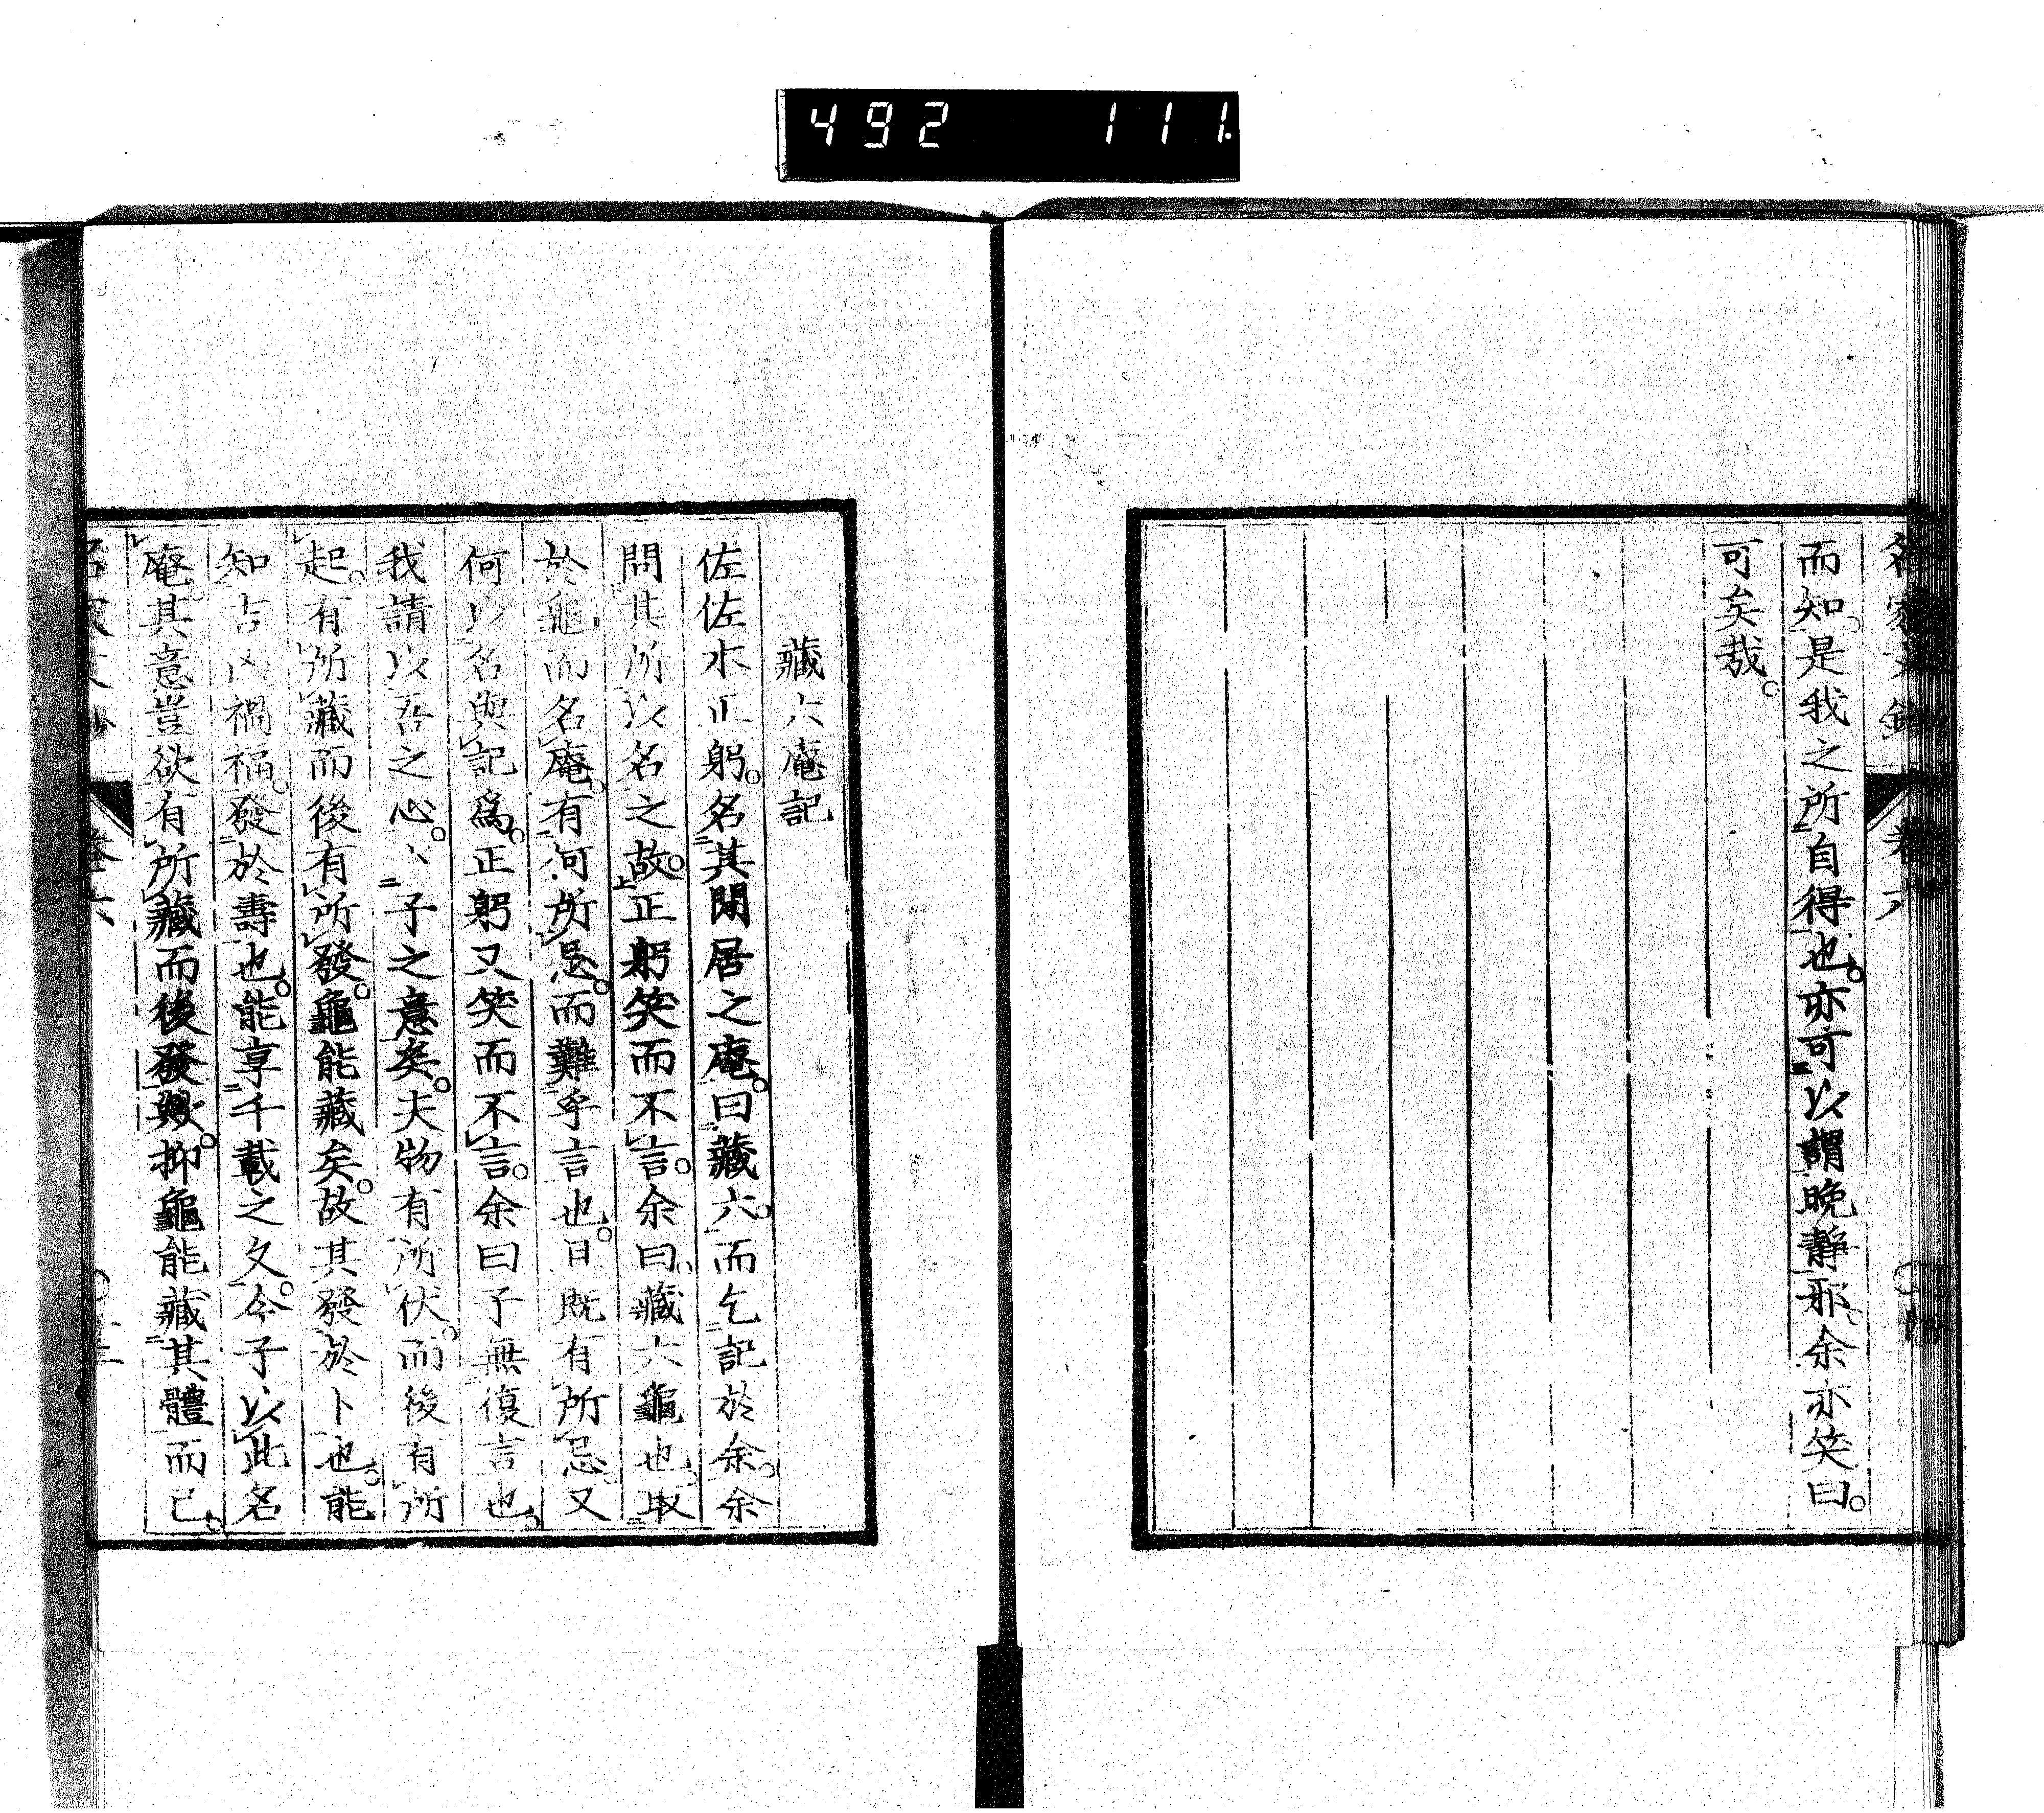 492 111
而知是我之所自得也亦可以謂晚靜邪余亦笑曰
可矣哉
藏六庵記
佐佐木正躬名其閑居之庵曰藏六而乞記於余余
問其所以名之故正躬笑而不言余曰藏六龜也取
於龜而名庵有何所忌而難乎言也曰既有所忌又
何以名與記爲正躬又笑而不言余曰子無復言也
我請以吾之心心子之意矣夫物有所伏而後有所
起有所藏而後有所發龜能藏矣故其發於卜也能
知吉凶禍福發於壽也能享千載之久今子以此名
庵其意豈欲有所藏而後發歟抑龜能藏其體而已
卷六